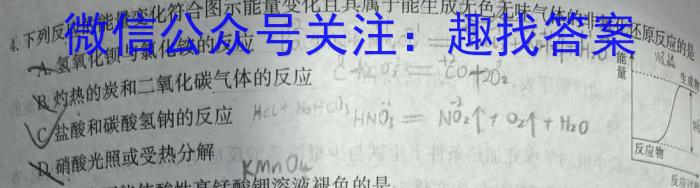 4.下列反应能量变化符合图示能量变化且其属于能生成无色无味气体的非氧化还原反应的是
微信公众号关注：趣找答案
A.氢氧化钡与氯化铵的反应
B.灼热的炭和二氧化碳气体的反应
C.盐酸和碳酸氢钠的反应 HCl+NaHCO₃
D.硝酸光照或受热分解
HNO₃ = NO₂↑+O₂↑+H₂O
KMnO₄
能量
生成物
反应物
高锰酸钾溶液褪色的是